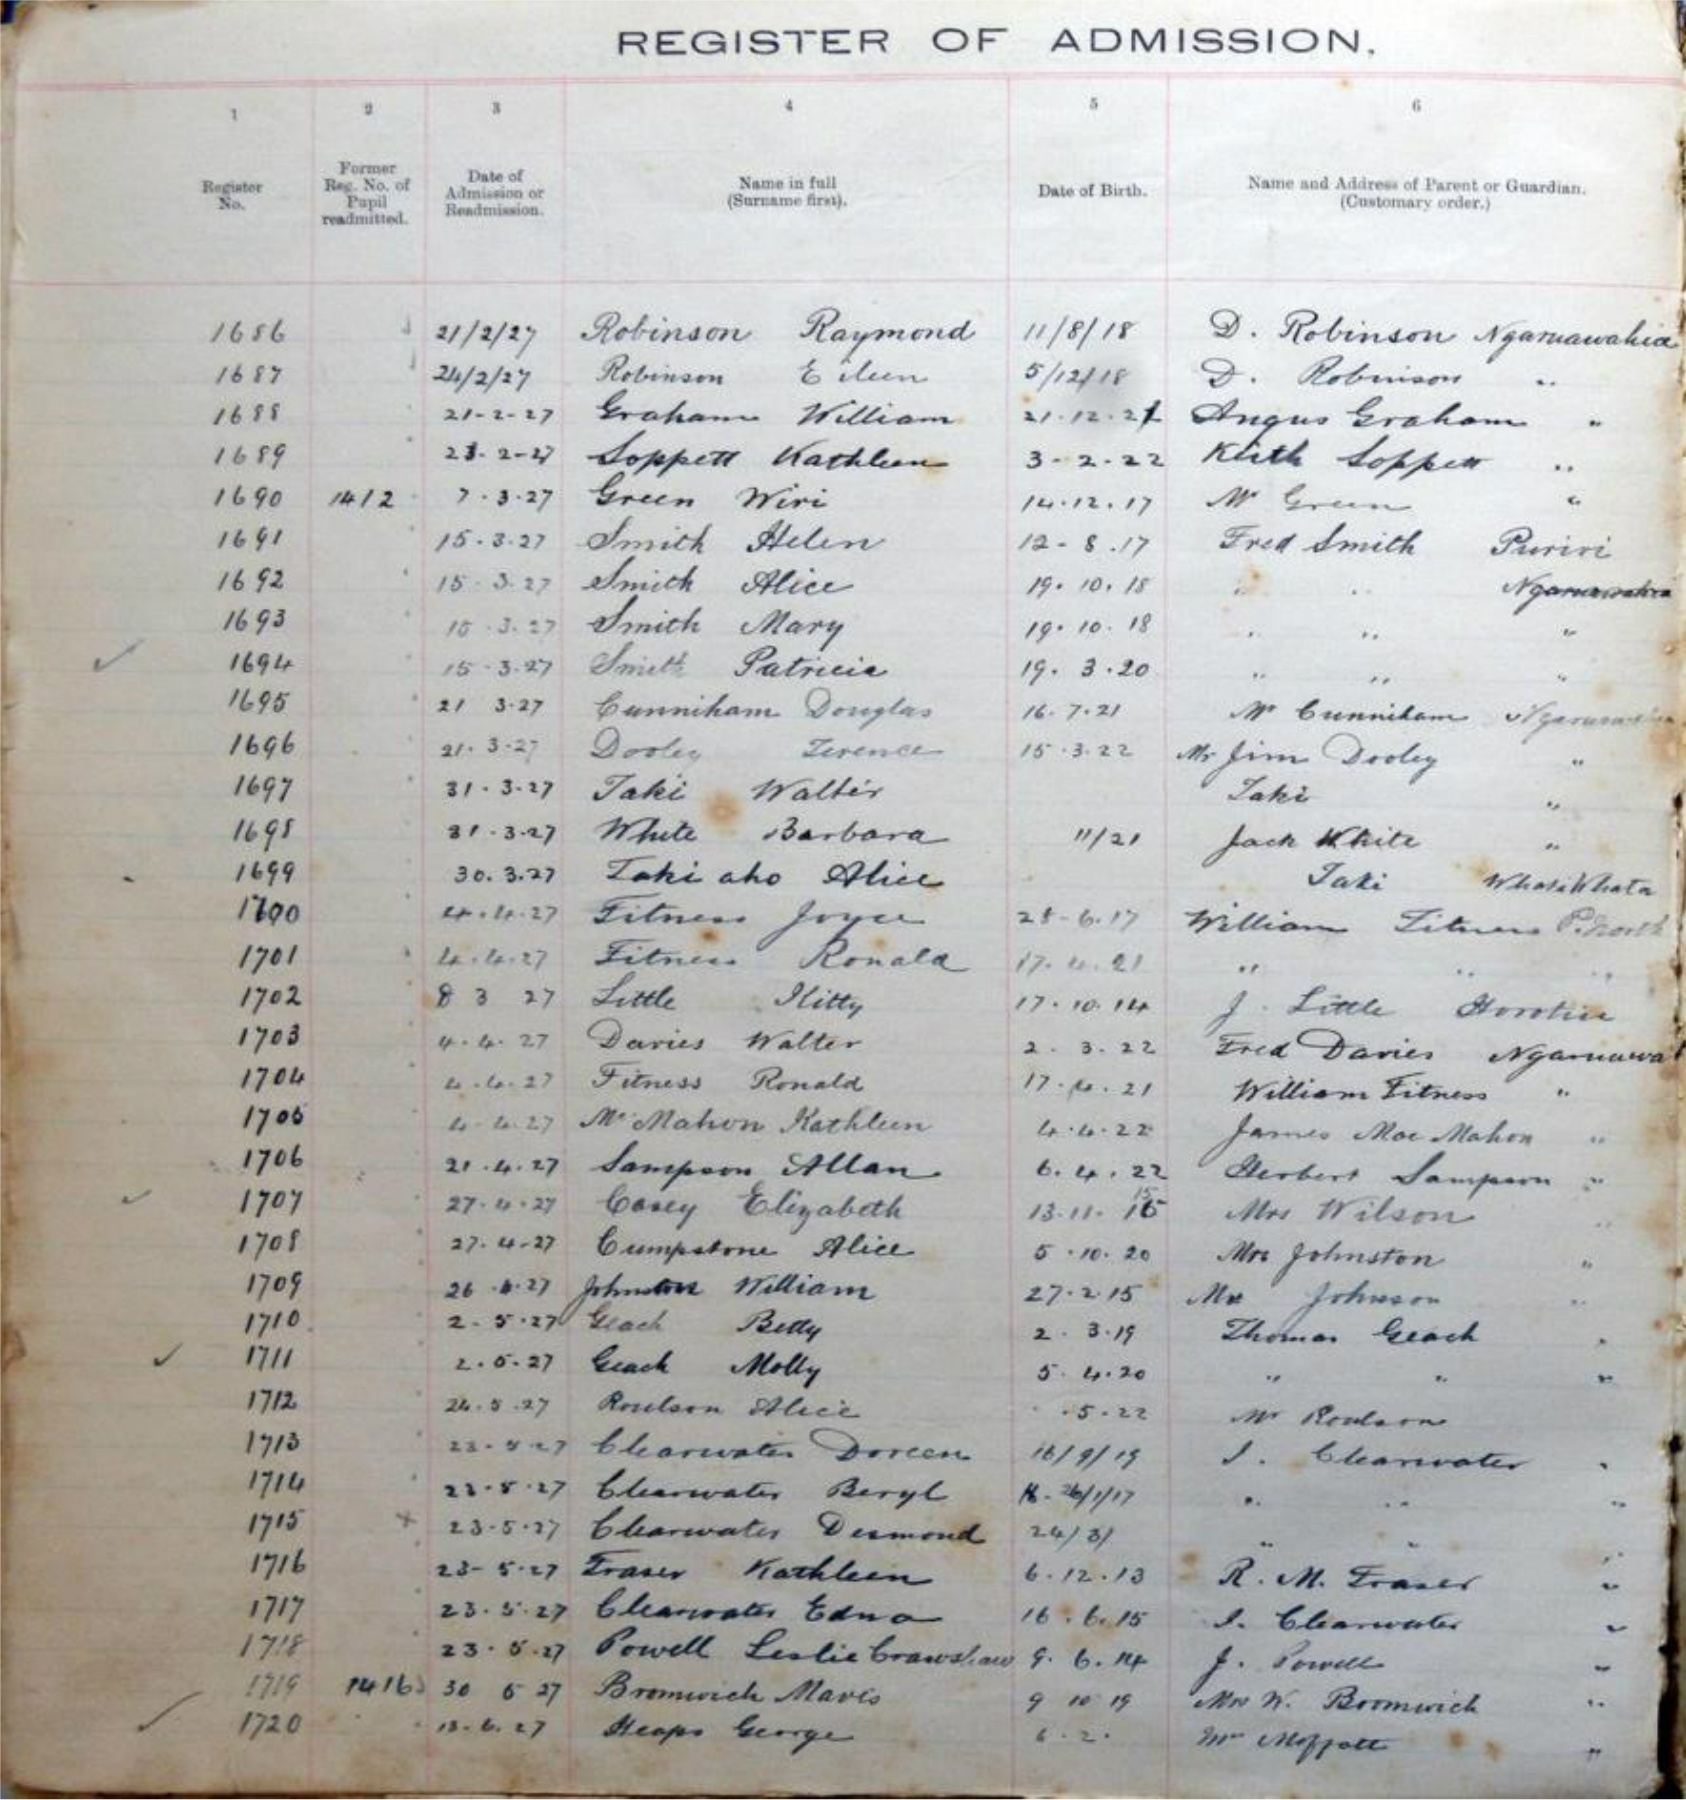 REGISTER OF ADMISSION.
1 2 3 4 5 6
Register No. Former Reg. No. of Pupil readmitted. Date of Admission or Readmission. Name in full (Surname first). Date of Birth. Name and Address of Parent or Guardian. (Customary order.)
1686 21/2/27 Robinson Raymond 11/8/18 D. Robinson Ngaruawahia
1687 24/2/27 Robinson Eileen 5/12/18 D. Robinson "
1688 21-2-27 Graham William 21.12.21 Angus Graham "
1689 21-2-27 Soppett Kathleen 3-2-22 Keith Soppett "
1690 1412 7.3.27 Green Wiri 14.12.17 Mr Green "
1691 15.3.27 Smith Helen 12-8.17 Fred Smith Puriri
1692 15.3.27 Smith Alice 19.10.18 " " Ngaruawahia
1693 15.3.27 Smith Mary 19.10.18 " " "
1694 15.3.27 Smith Patricia 19.3.20 " " "
1695 21 3.27 Cunniham Douglas 16.7.21 Mr Cunniham Ngaruawahia
1696 21.3.27 Dooley Terence 15.3.22 Mr Jim Dooley "
1697 31.3.27 Taki Walter Taki "
1698 31.3.27 White Barbara 11/21 Jack White "
1699 30.3.27 Taki aho Alice Taki WhatiWhata
1700 4.4.27 Fitness Joyce 28-6.17 William Fitness P.North
1701 4.4.27 Fitness Ronald 17.4.21 " " "
1702 8 3 27 Little Kitty 17.10.14 J. Little Horotiu
1703 4.4.27 Davies Walter 2.3.22 Fred Davies Ngaruawa
1704 4.4.27 Fitness Ronald 17.4.21 William Fitness "
1705 4.4.27 McMahon Kathleen 4.4.22 James MacMahon "
1706 21.4.27 Sampson Allan 6.4.22 Herbert Sampson "
1707 27.4.27 Casey Elizabeth 13.11. 15 Mrs Wilson "
1708 27.4.27 Cumpstone Alice 5.10.20 Mrs Johnston "
1709 26.4.27 Johnston William 27.2.15 Johnson "
1710 2.5.27 Geach Betty 2.3.19 Thomas Geach "
1711 2.5.27 Geach Molly 5.4.20 " " "
1712 24.5.27 Roulson Alice .5.22 Mr Roulson
1713 23.5.27 Clearwater Doreen 16/9/19 I. Clearwater "
1714 23.5.27 Clearwater Beryl 26/1/17 " " "
1715 23.5.27 Clearwater Desmond 24/3/ " "
1716 23-5.27 Fraser Kathleen 6.12.13 R. M. Fraser "
1717 23.5.27 Clearwater Edna 16.6.15 I. Clearwater "
1718 23.5.27 Powell Leslie Crawshaw 9.6.14 J. Powell "
1719 1416 30 5 27 Bromwich Mavis 9 10 19 Mrs W. Bromwich "
1720 13.6.27 Heaps George 6.2. Moffatt "